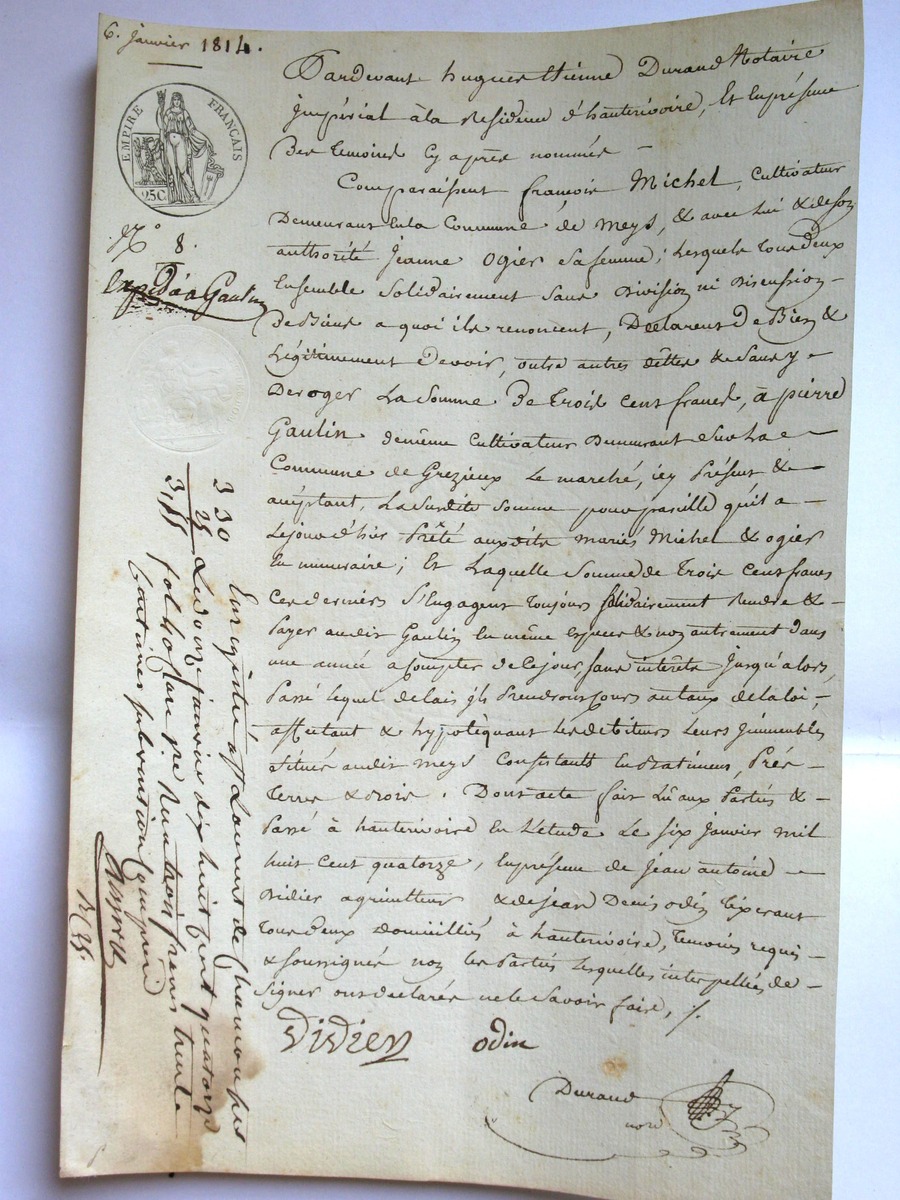 6. Janvier 1814.
EMPIRE FRANÇAIS
25 C.
N.° 8.
Expédié a Gaulin
Pardevant hugues Etienne Durand Notaire
Impérial à la Residence d'hauterivoire, et En présence
Des temoins Cy après nommés –
Comparaissent françois Michel, Cultivateur
Demeurant En la Commune de Meys, & avec Lui & de son
authorité Jeanne Ogier Sa femme ; Lesquels tous deux
Ensemble Solidairement Sans Division ni Discussion
De Biens a quoi ils renoncent, Déclarent De Bien &
Légitimement Devoir, outre autres dettes & Sans y
Deroger La Somme De trois cent francs, à pierre
Gaulin de même Cultivateur Demeurant Sur La
Commune de Grezieux Le marché, icy Présent &
acceptant, La Susdite Somme pour pareille qu'il a
Le jour d'hier Prêté auxdits mariés Michel & ogier
En numeraire ; Et Laquelle Somme de trois Cent francs
Ces derniers S'Engagent toujours Solidairement Rendre &
Payer audit Gaulin En même Espece & non autrement Dans
une année a Compter de Ce jour, Sans intérêts Jusqu'alors,
Passé lequel delais ils Prendront Cours au taux de la loi,
affectant & hypotèquant Les debiteurs Leurs Immeubles
Situés audit Meys Consistants En Batimens, Prés
Terres & Bois. Dont acte fait Lû aux Parties &
Passé à hauterivoire En L'étude Le Six Janvier mil
huit Cent quatorze, En présence de Jean antoine
Didier agriculteur & de Jean Denis odin
tous deux Domiciliés à hauterivoire, Temoins requis
& Soussignés non les Parties Lesquelles interpellées de
Signer ont déclarés ne le Savoir faire, /.
Didier odin
Durand
nore
3 30
Enregistré a St Laurent de chamousset
Le douze janvier dix huit cent quatorze
trois francs trente
Centimes subvention Comprise